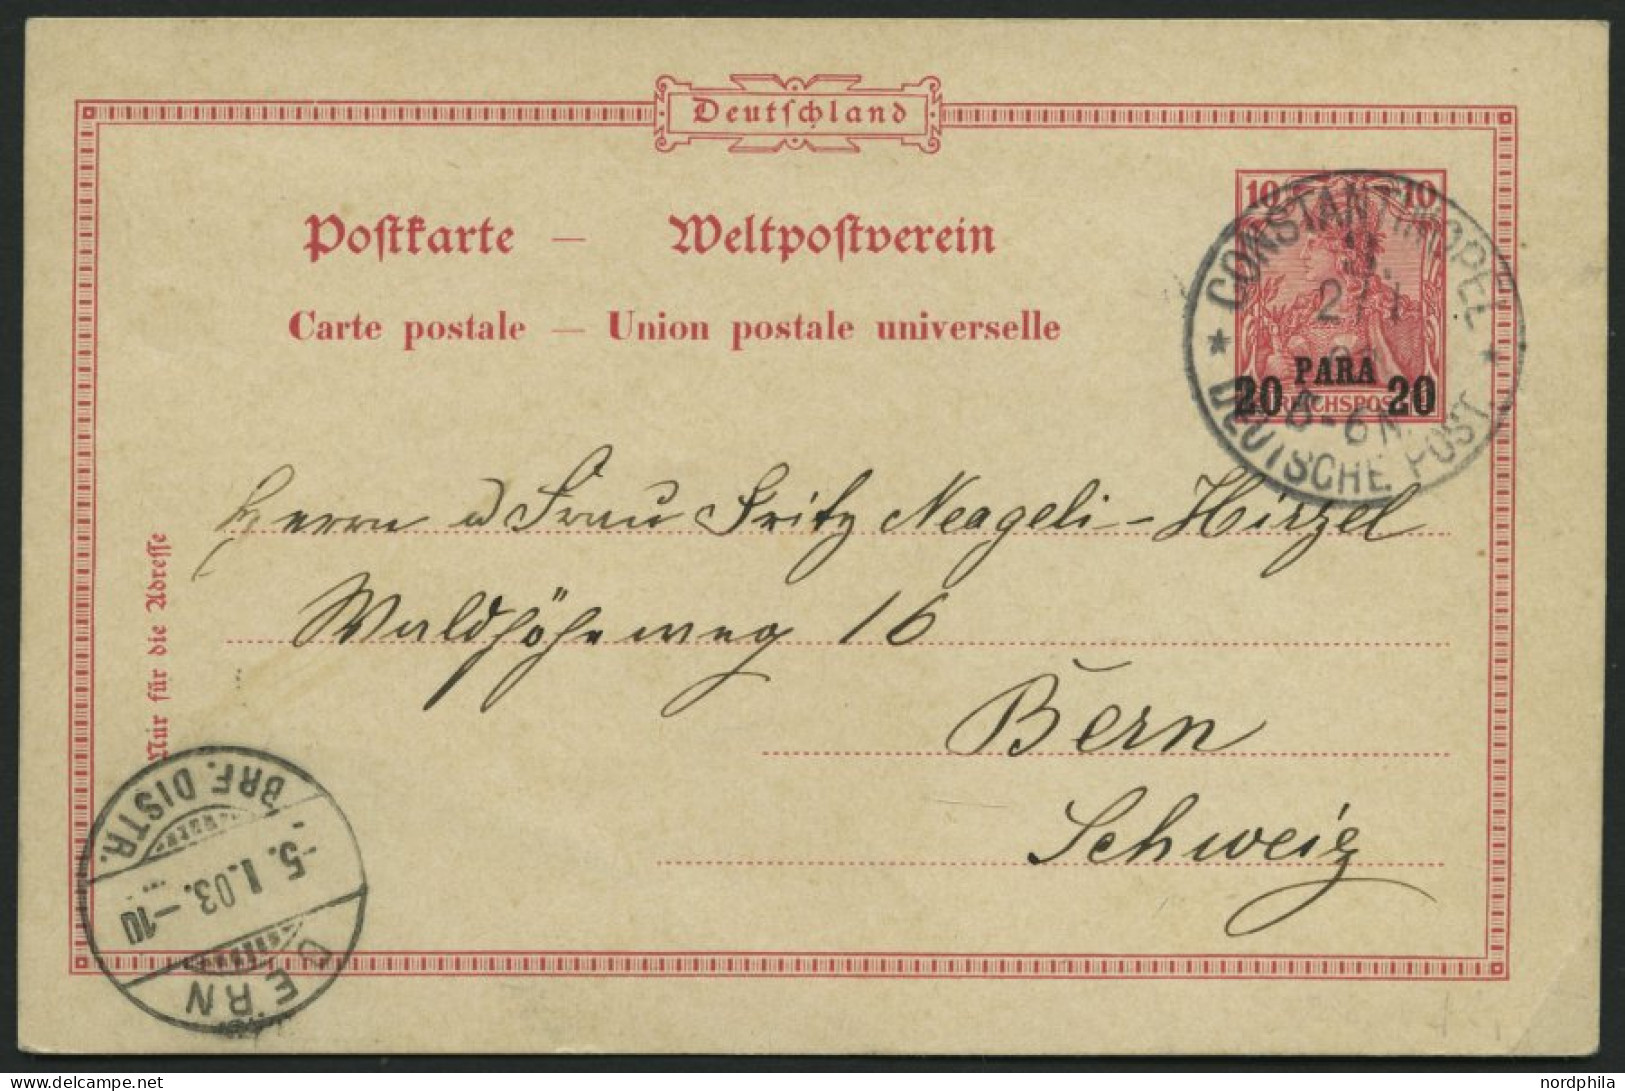 Deutschland
Postkarte — Weltpostverein
Carte postale — Union postale universelle
10 10
PARA
20 20
REICHSPOST
* CONSTANTINOPEL *
3.
2/1
5-6N.
DEUTSCHE POST.
Herrn u Frau Fritz Neageli-Hirzel
Waldhöheweg 16
Bern
Schweiz
Nur für die Adresse
BRF. DISTR.
-5. I. 03. -10
BERN
nordphila
www.delcampe.net